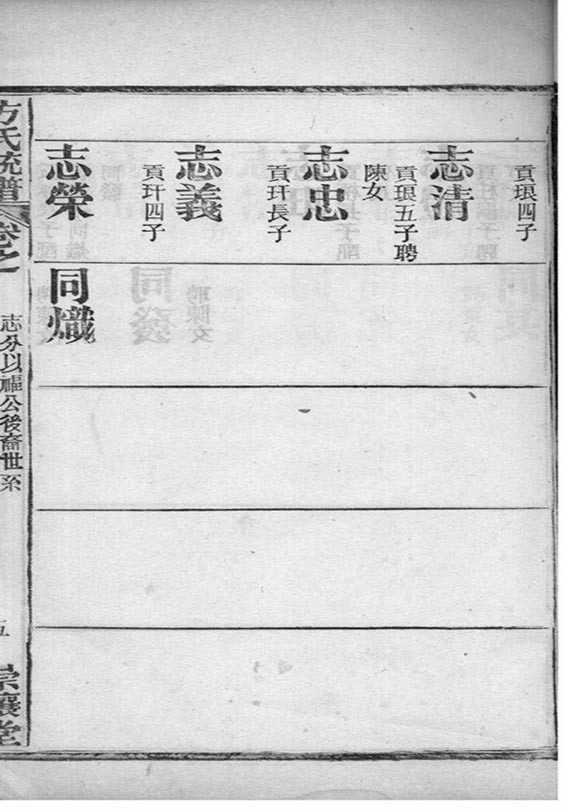 貢琅四子
志清
貢琅五子聘
陳女
志忠
貢玕長子
志義
貢玕四子
志榮
同熾
方氏統譜
卷之一
志分以福公後裔世系
五
崇讓堂